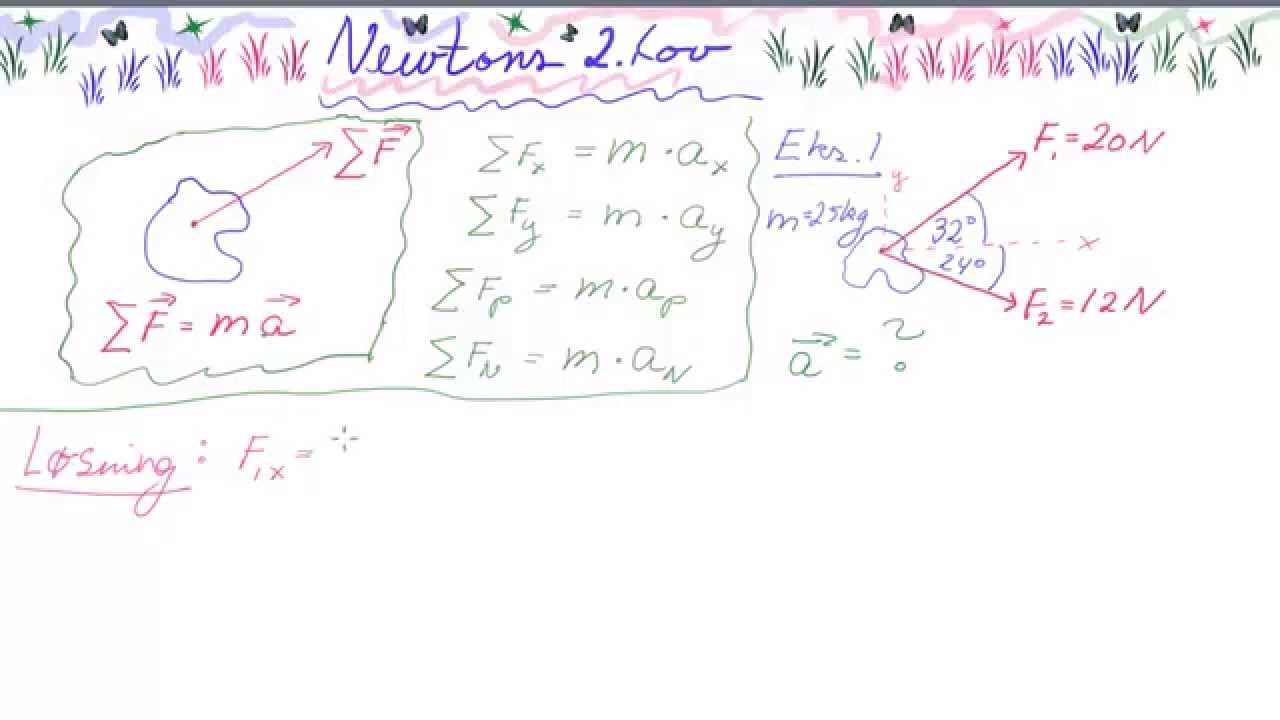 Newtons 2.Lov
ΣF⃗
ΣF⃗ = ma⃗
ΣFₓ = m·aₓ
ΣF_y = m·a_y
ΣF_p = m·a_p
ΣF_N = m·a_N
Eks.1
y
m=25kg
F₁=20N
32°
x
24°
F₂=12N
a⃗ = ?
Løsning: F₁ₓ =